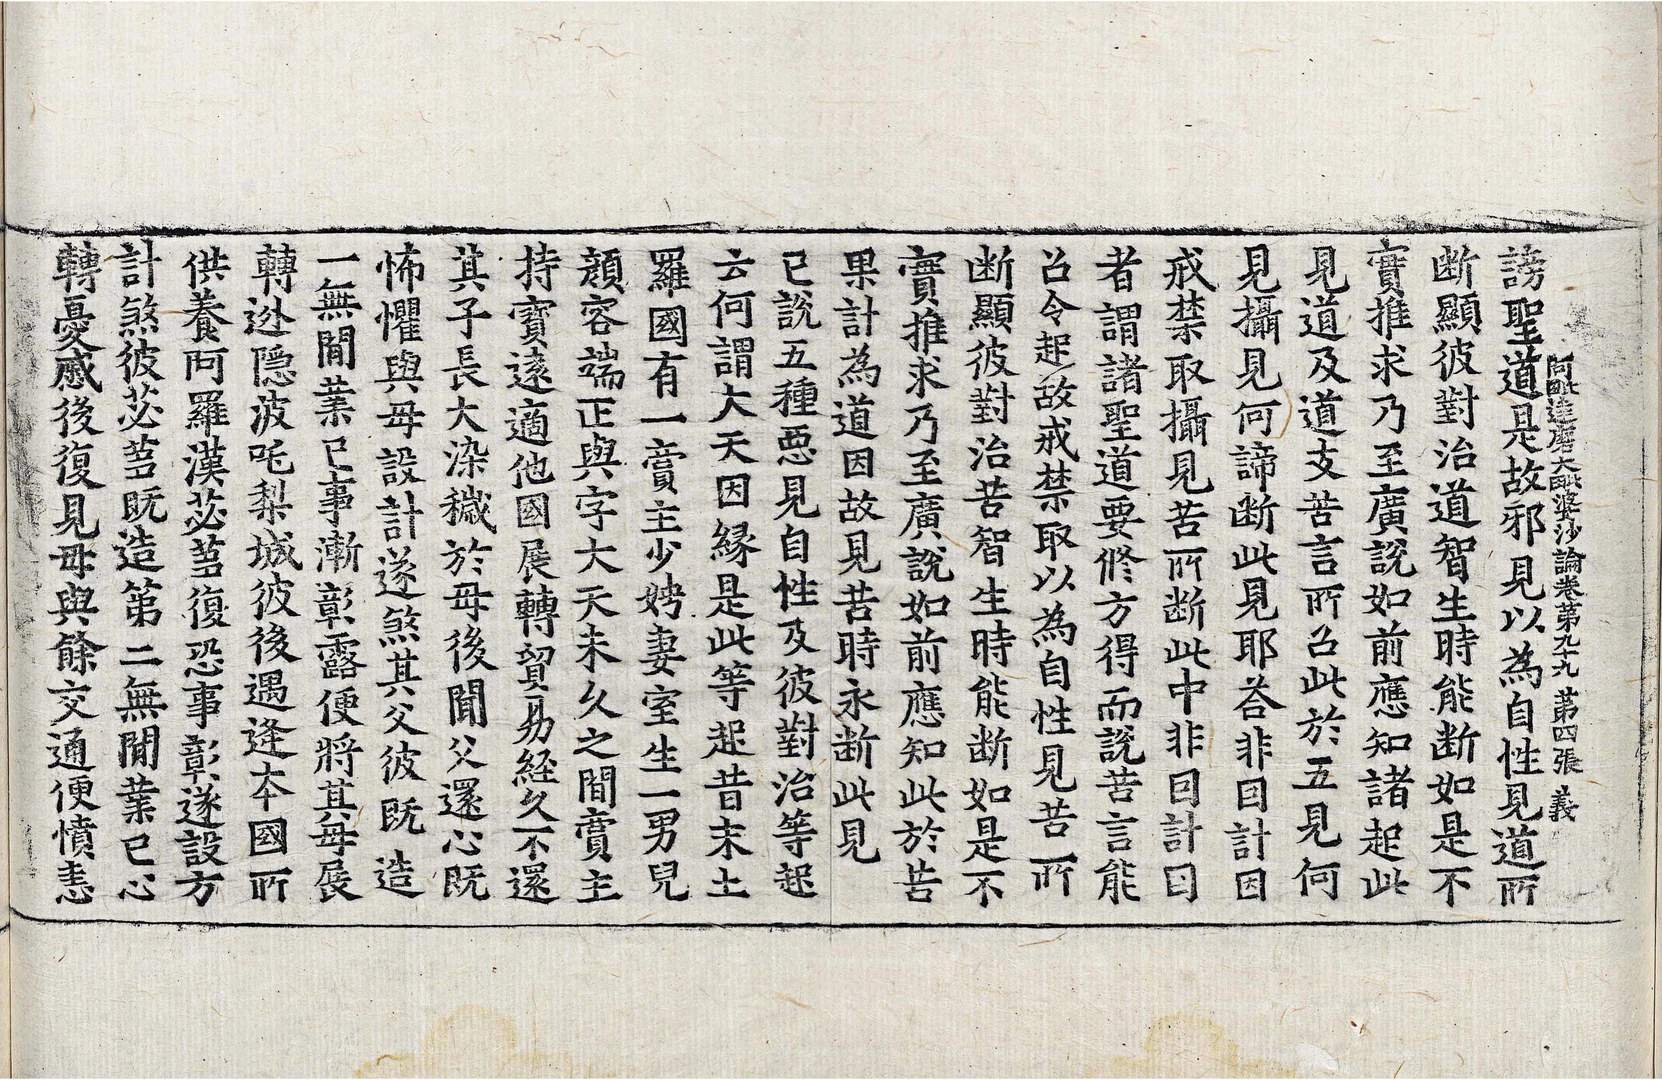 阿毗達磨大毗婆沙論卷第九十九　第四張　義
謗聖道是故邪見以為自性見道所
断顯彼對治道智生時能断如是不
實推求乃至廣說如前應知諸起此
見道及道支苦言所召此於五見何
見攝見何諦断此見耶荅非因計因
戒禁取攝見苦所断此中非因計因
者謂諸聖道要俢方得而說苦言能
召令起故戒禁取以為自性見苦所
断顯彼對治苦智生時能断如是不
實推求乃至廣說如前應知此於苦
果計為道因故見苦時永断此見
已說五種惡見自性及彼對治等起
云何謂大天因縁是此等起昔末土
羅國有一賣主少娉妻室生一男兒
顔容端正與字大天未久之間賣主
持寶遠適他國展轉貿易經久不還
其子長大染穢於母後聞父還心既
怖懼與母設計遂煞其父彼既造
一無間業已事漸彰露便將其母展
轉逃隱波吒梨城彼後遇逢本國所
供養阿羅漢苾芻復恐事彰遂設方
計煞彼苾芻既造第二無間業已心
轉憂慼後復見母與餘交通便憤恚